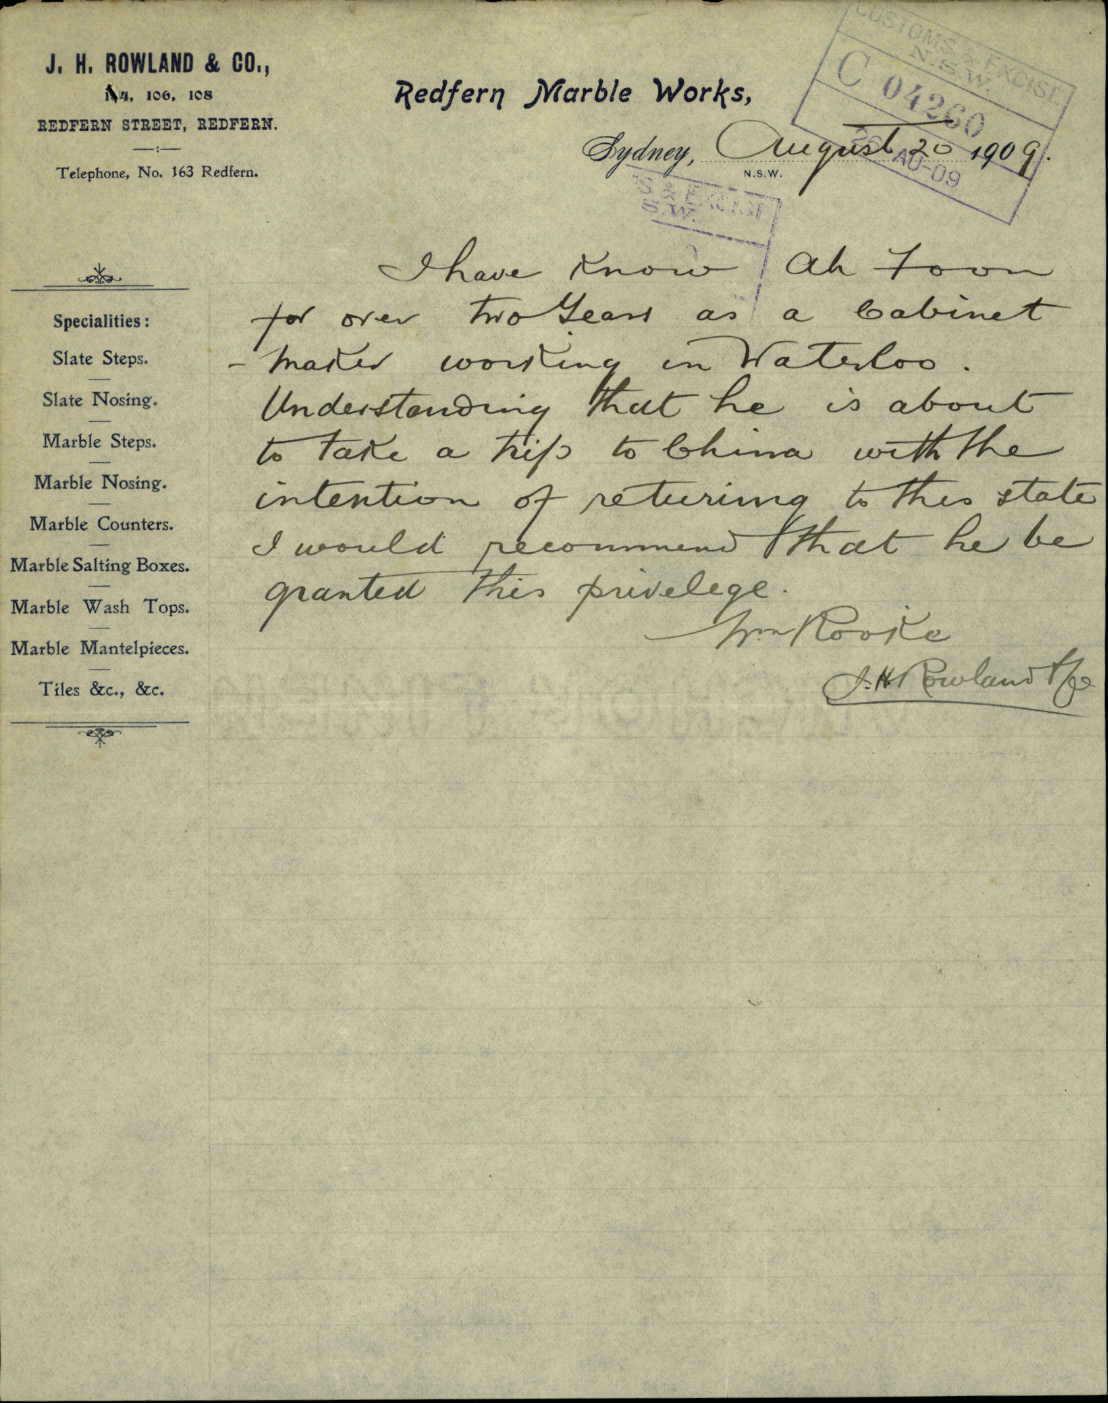 J. H. ROWLAND & CO.,
104, 106, 108
REDFERN STREET, REDFERN.
Telephone, No. 163 Redfern.
Redfern Marble Works,
Sydney, August 20 1909.
N.S.W.
CUSTOMS & EXCISE
N.S.W.
C 04260
AU-09
S & EXCISE
S.W.
Specialities:
Slate Steps.
Slate Nosing.
Marble Steps.
Marble Nosing.
Marble Counters.
Marble Salting Boxes.
Marble Wash Tops.
Marble Mantelpieces.
Tiles &c., &c.
I have know Ah Foon
for over two Years as a Cabinet
- maker working in Waterloo.
Understanding that he is about
to take a trip to China with the
intention of returing to this state
I would recommend that he be
granted this privelege.
Wm Rooke
J. H. Rowland & Co